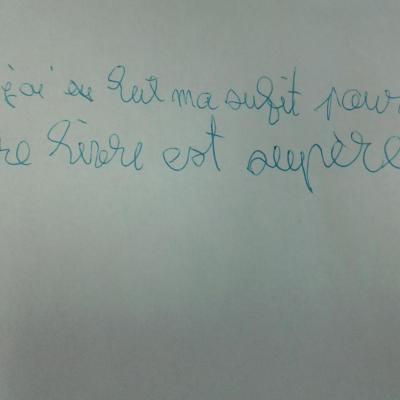 j'ai eu huit ma sufit pour
re livre est supère